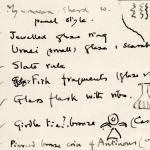 sherd w.
panel style.
Jewelled glaze ring
Uraei (small), glaze, & scarab
Slate rule
Fish fragments (glaze
Glass flask with ribs.
Girdle bronze
bronze coin of Antinous